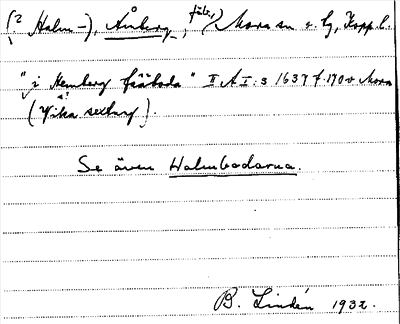 (? Halm-), Åmberg, fäb., Mora sn o. tg, Kopp. l.
"i Åmberg fääboda" II A I: 3 1637 f. 170 v Mora
(Vika sextung).
Se även Halmbodarna.
B. Lindén 1932.